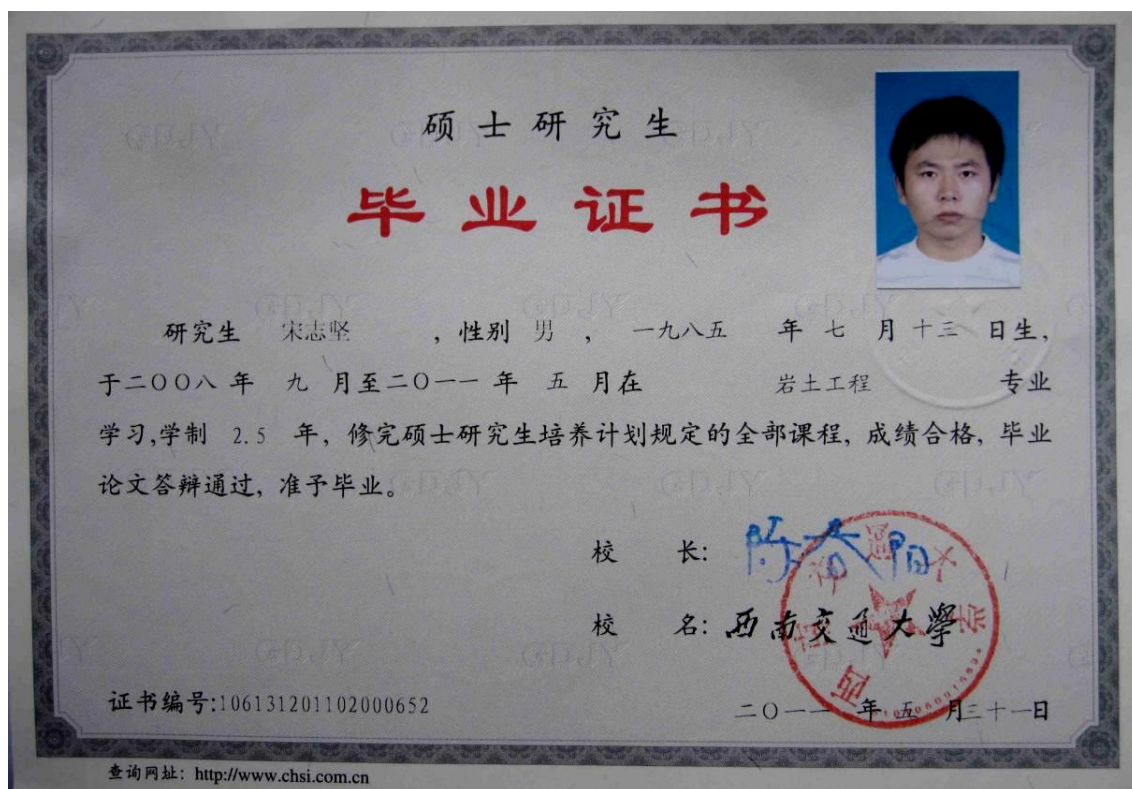 硕士研究生
毕业证书
研究生 宋志坚 , 性别 男 , 一九八五 年 七 月 十三 日生,
于二〇〇八 年 九 月至二〇一一 年 五 月在 岩土工程 专业
学习,学制 2.5 年, 修完硕士研究生培养计划规定的全部课程, 成绩合格, 毕业
论文答辩通过, 准予毕业。
校 长: 陈春阳
校 名: 西南交通大學
西南交通大学
证书编号:106131201102000652
二〇一一 年 五 月三十一日
查询网址: http://www.chsi.com.cn